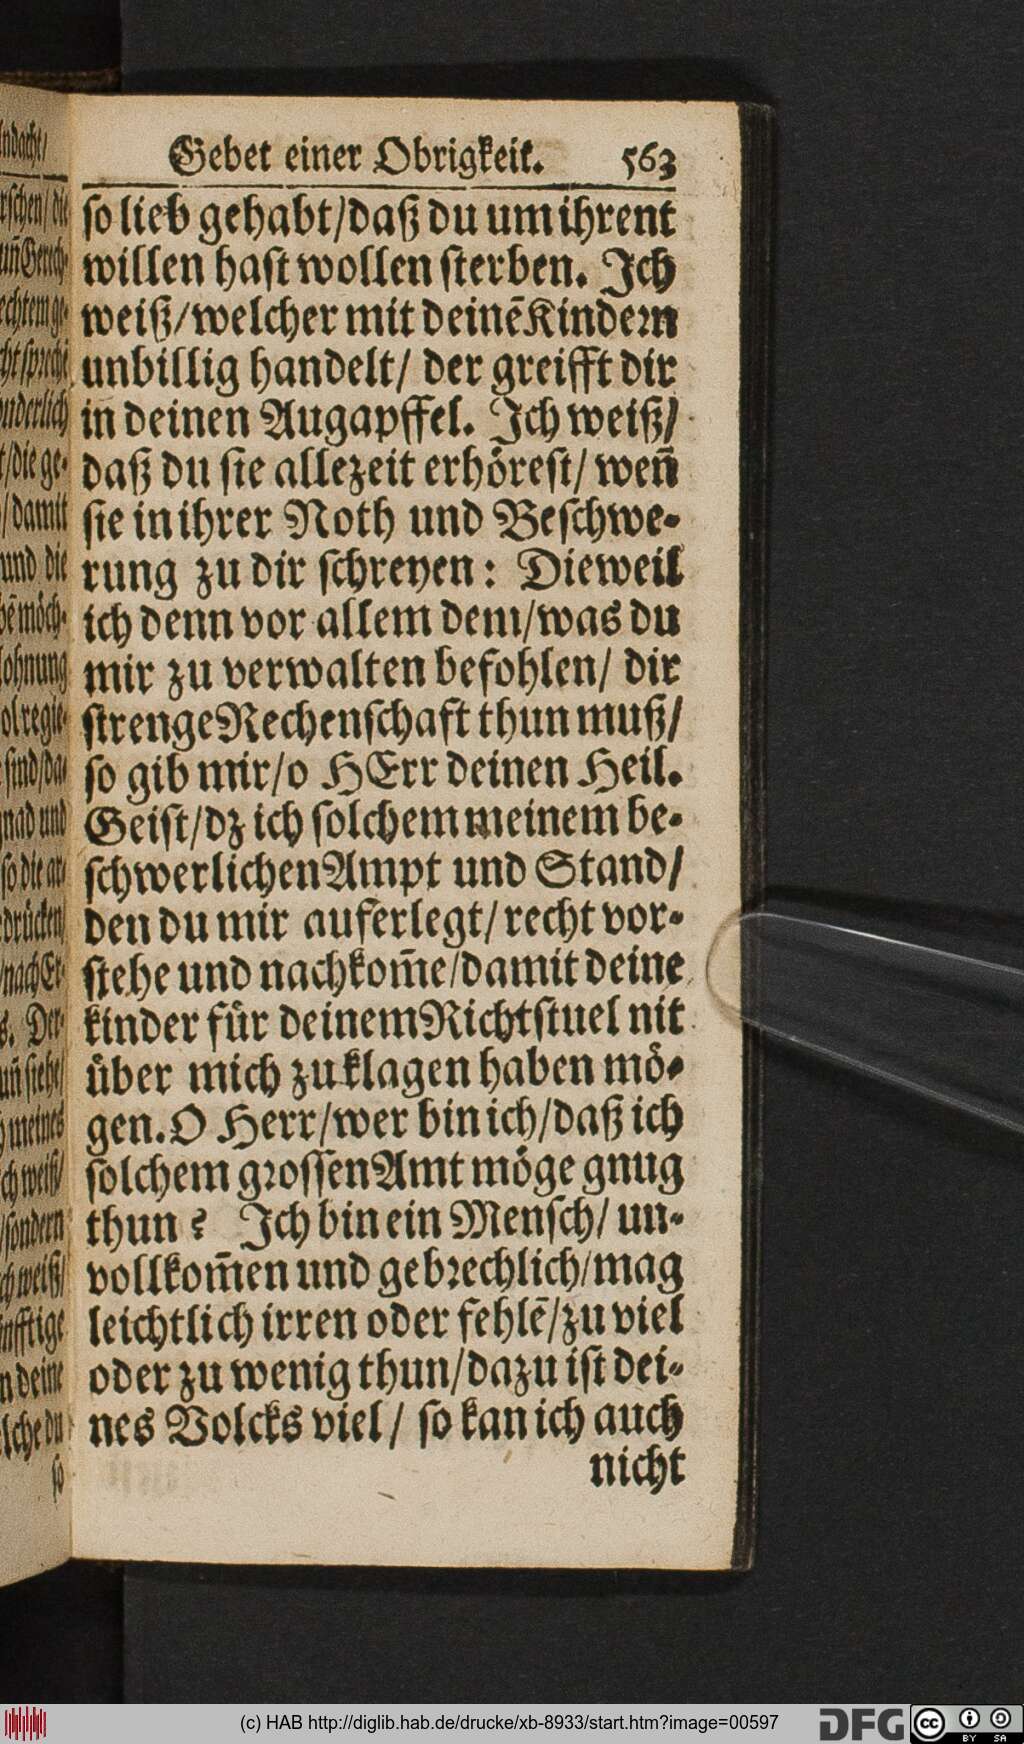 Gebet einer Obrigkeit. 563
so lieb gehabt/daß du um ihrent
willen hast wollen sterben. Ich
weiß/welcher mit deinē Kindern
unbillig handelt/ der greifft dir
in deinen Augapffel. Ich weiß/
daß du sie allezeit erhörest/ weñ
sie in ihrer Noth und Beschwe-
rung zu dir schreyen: Dieweil
ich denn vor allem dem/was du
mir zu verwalten befohlen/ dir
strenge Rechenschaft thun muß/
so gib mir/o HErr deinen Heil.
Geist/dz ich solchem meinem be-
schwerlichen Ampt und Stand/
den du mir auferlegt/recht vor-
stehe und nachkom̃e/damit deine
kinder für deinem Richtstuel nit
über mich zu klagen haben mö-
gen. O Herr/wer bin ich/daß ich
solchem grossen Amt möge gnug
thun? Ich bin ein Mensch/ un-
vollkom̃en und gebrechlich/mag
leichtlich irren oder fehlē/zu viel
oder zu wenig thun/dazu ist dei-
nes Volcks viel/ so kan ich auch
nicht
(c) HAB http://diglib.hab.de/drucke/xb-8933/start.htm?image=00597
DFG cc BY SA